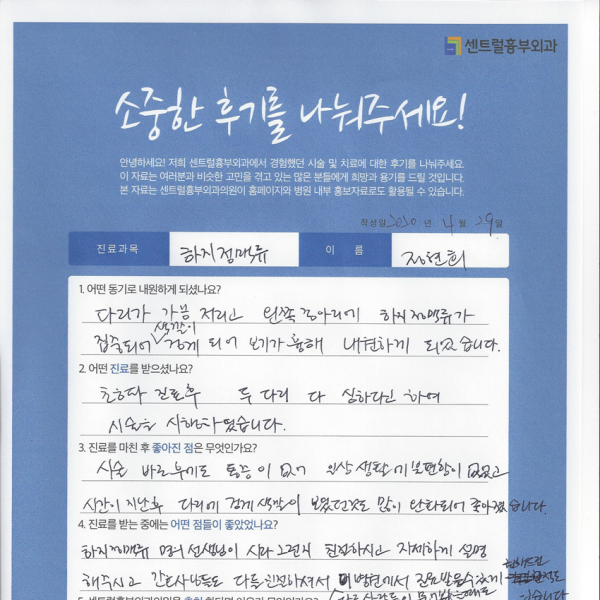 센트럴흉부외과
소중한 후기를 나눠주세요!
안녕하세요! 저희 센트럴흉부외과에서 경험했던 시술 및 치료에 대한 후기를 나눠주세요.
이 자료는 여러분과 비슷한 고민을 겪고 있는 많은 분들에게 희망과 용기를 드릴 것입니다.
본 자료는 센트럴흉부외과의원이 홈페이지와 병원 내부 홍보자료로도 활용될 수 있습니다.
작성일 2020 년 4 월 29 일
진료과목 하지정맥류 이 름 정현희
1. 어떤 동기로 내원하게 되셨나요?
다리가 가끔 저리고 왼쪽 종아리에 하지정맥류가
색깔이
집중되어 검게 되어 보기가 흉해 내원하게 되었습니다.
2. 어떤 진료를 받으셨나요?
초음파 진료후 두 다리 다 심하다고 하여
시술을 시행하였습니다.
3. 진료를 마친 후 좋아진 점은 무엇인가요?
시술 바로 통증이 없어 일상생활에 불편함이 없었고
시간이 지난후 다리에 검게 색깔이 보였던것도 많이 완화되어 좋아졌습니다.
4. 진료를 받는 중에는 어떤 점들이 좋았었나요?
하지정맥류 선생님이 친절하시고 자세하게 설명
해주시고 간호사님들도 다들 친절하셔서 이 병원에서 진료받을수있게